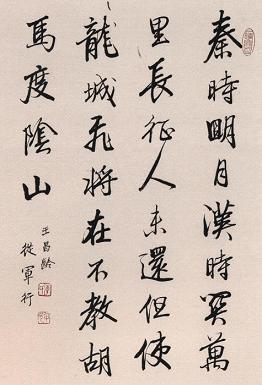 秦時明月漢時關萬
里長征人未還但使
龍城飛將在不教胡
馬度陰山
王昌齡
從軍行